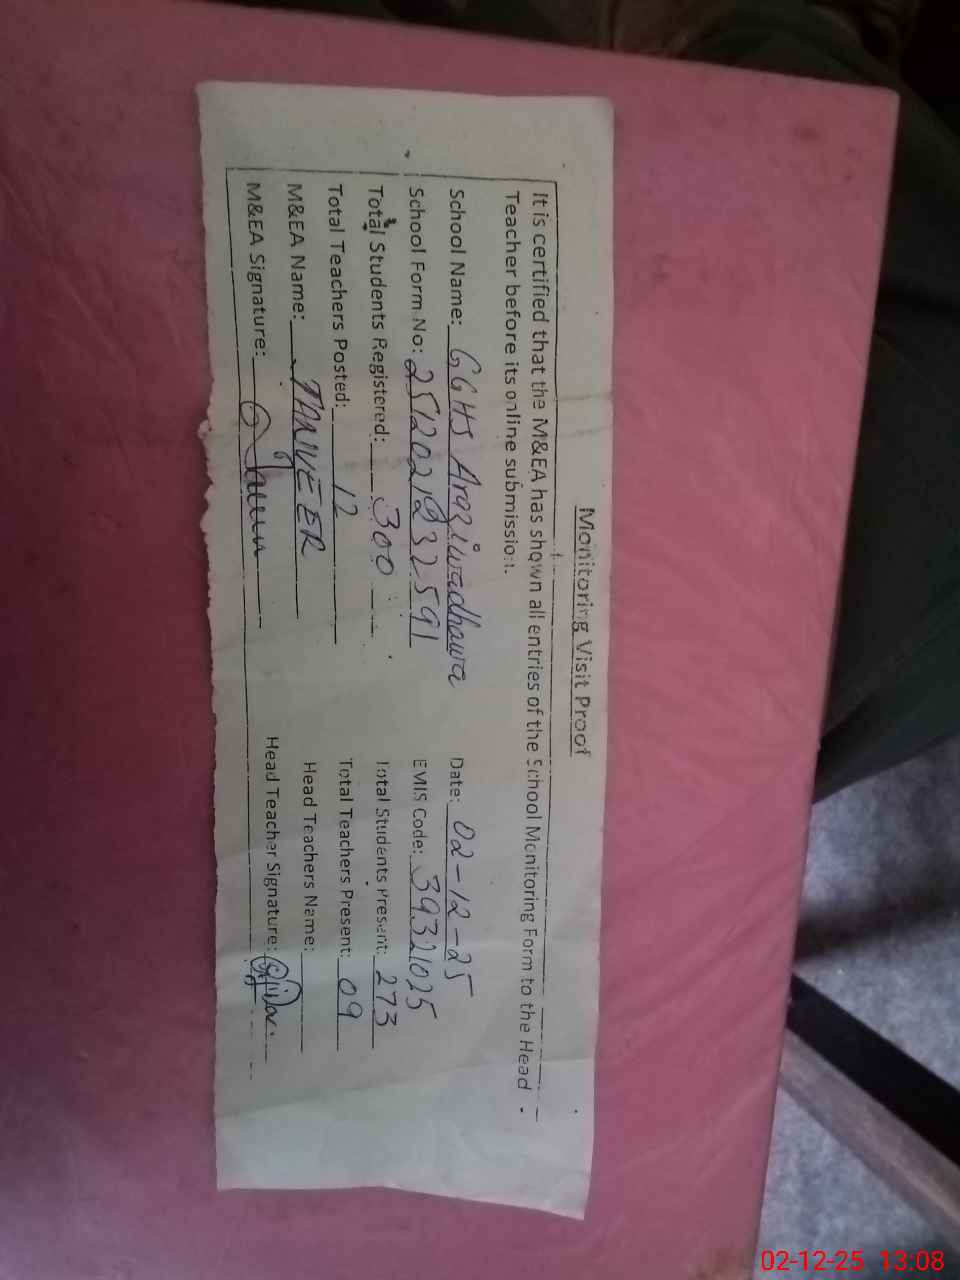 Monitoring Visit Proof
It is certified that the M&EA has shown all entries of the School Monitoring Form to the Head
Teacher before its online submission.
School Name: GGHS Araziwadhawa Date: 02-12-25
School Form No: 2512021232591 EMIS Code: 39321025
Total Students Registered: 300 Total Students Present: 273
Total Teachers Posted: 12 Total Teachers Present: 09
M&EA Name: TANVEER Head Teachers Name:
M&EA Signature: Head Teacher Signature:
02-12-25 13:08